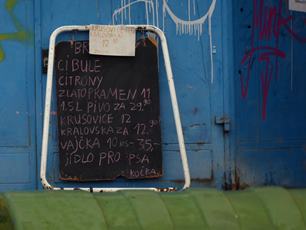 KRUSOVICE
12
BR
CIBULE
CITRÓNY
ZLATOPRAMEN 11
1.5L PIVO ZA 29.90
KRUSOVICE 12
KRALOVSKA ZA 12.90
VAJČKA 10KS- 35,-
JÍDLO PRO PSA
KOČKA